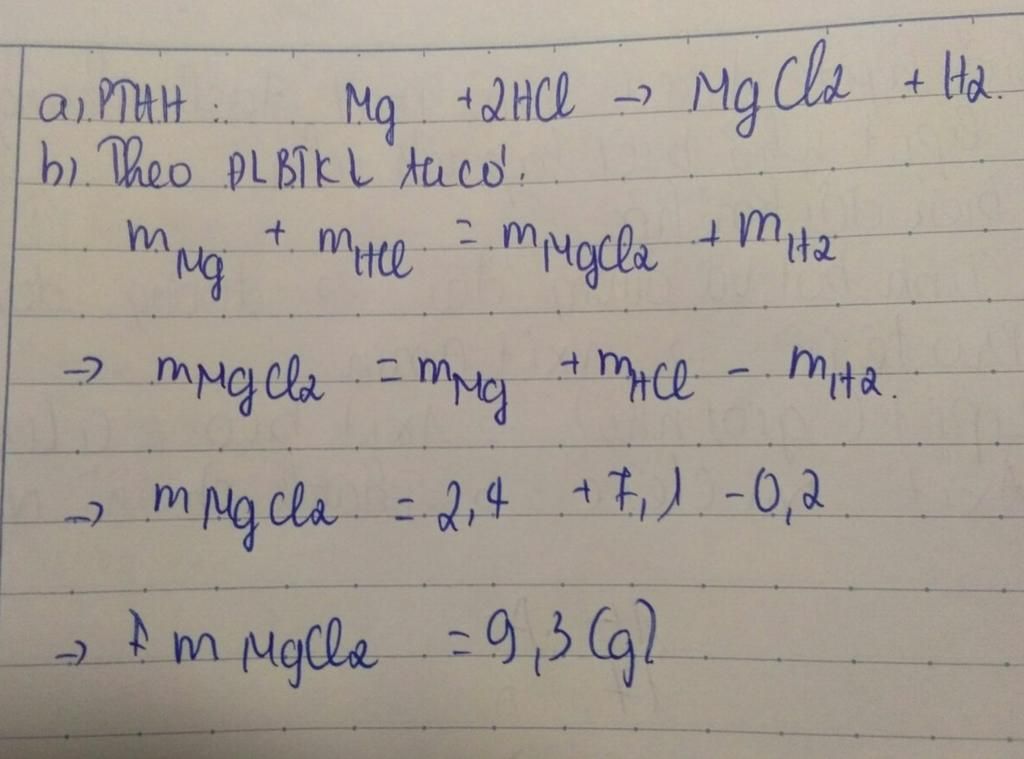 a), PTHH : Mg + 2HCl → MgCl2 + H2.
b). Theo ĐLBTKL ta có:
mMg + mHCl = mMgCl2 + mH2
→ mMgCl2 = mMg + mHCl - mH2.
→ mMgCl2 = 2,4 + 7,1 - 0,2
→ mMgCl2 = 9,3 (g)